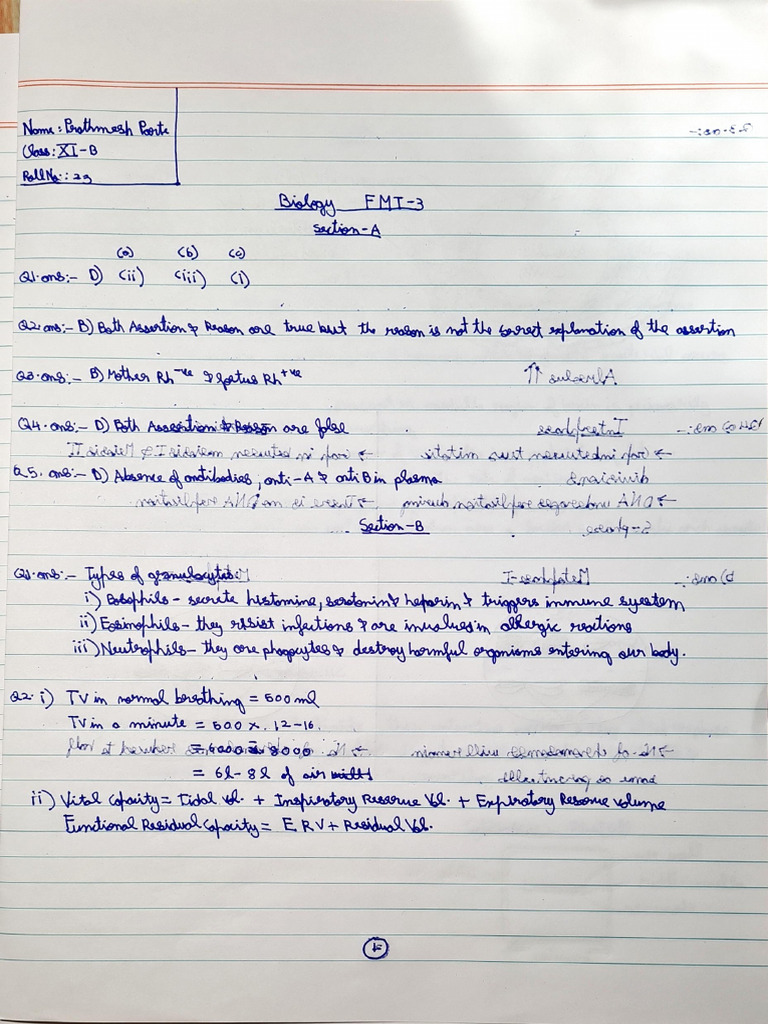 Name: Prathmesh Parte
Class: XI-B
Roll No.: 23
Biology FMT-3
Section-A
(a) (b) (c)
Q1. ans:- D) (ii) (iii) (i)
Q2. ans:- B) Both Assertion & Reason are true but the reason is not the correct explanation of the assertion
Q3. ans:- B) Mother Rh-ve & foetus Rh+ve
Q4. ans:- D) Both Assertion & Reason are false
Q5. ans:- D) Absence of antibodies, anti-A & anti B in plasma
Section-B
Q1. ans:- Types of granulocytes
i) Basophils - secrete histamine, serotonin & heparin & triggers immune syestem
ii) Eosinophils - they resist infections & are involves in allergic reactions
iii) Neutrophils - they are phagocytes & destroy harmful organisms entering our body.
Q2. i) TV in normal breathing = 500 ml
TV in a minute = 500 x 12-16.
= 6000 - 8000
= 6l - 8l of air
ii) Vital Capacity = Tidal Vol. + Inspiratory Reserve Vol. + Expiratory Reserve Volume
Functional Residual Capacity = ERV + Residual Vol.